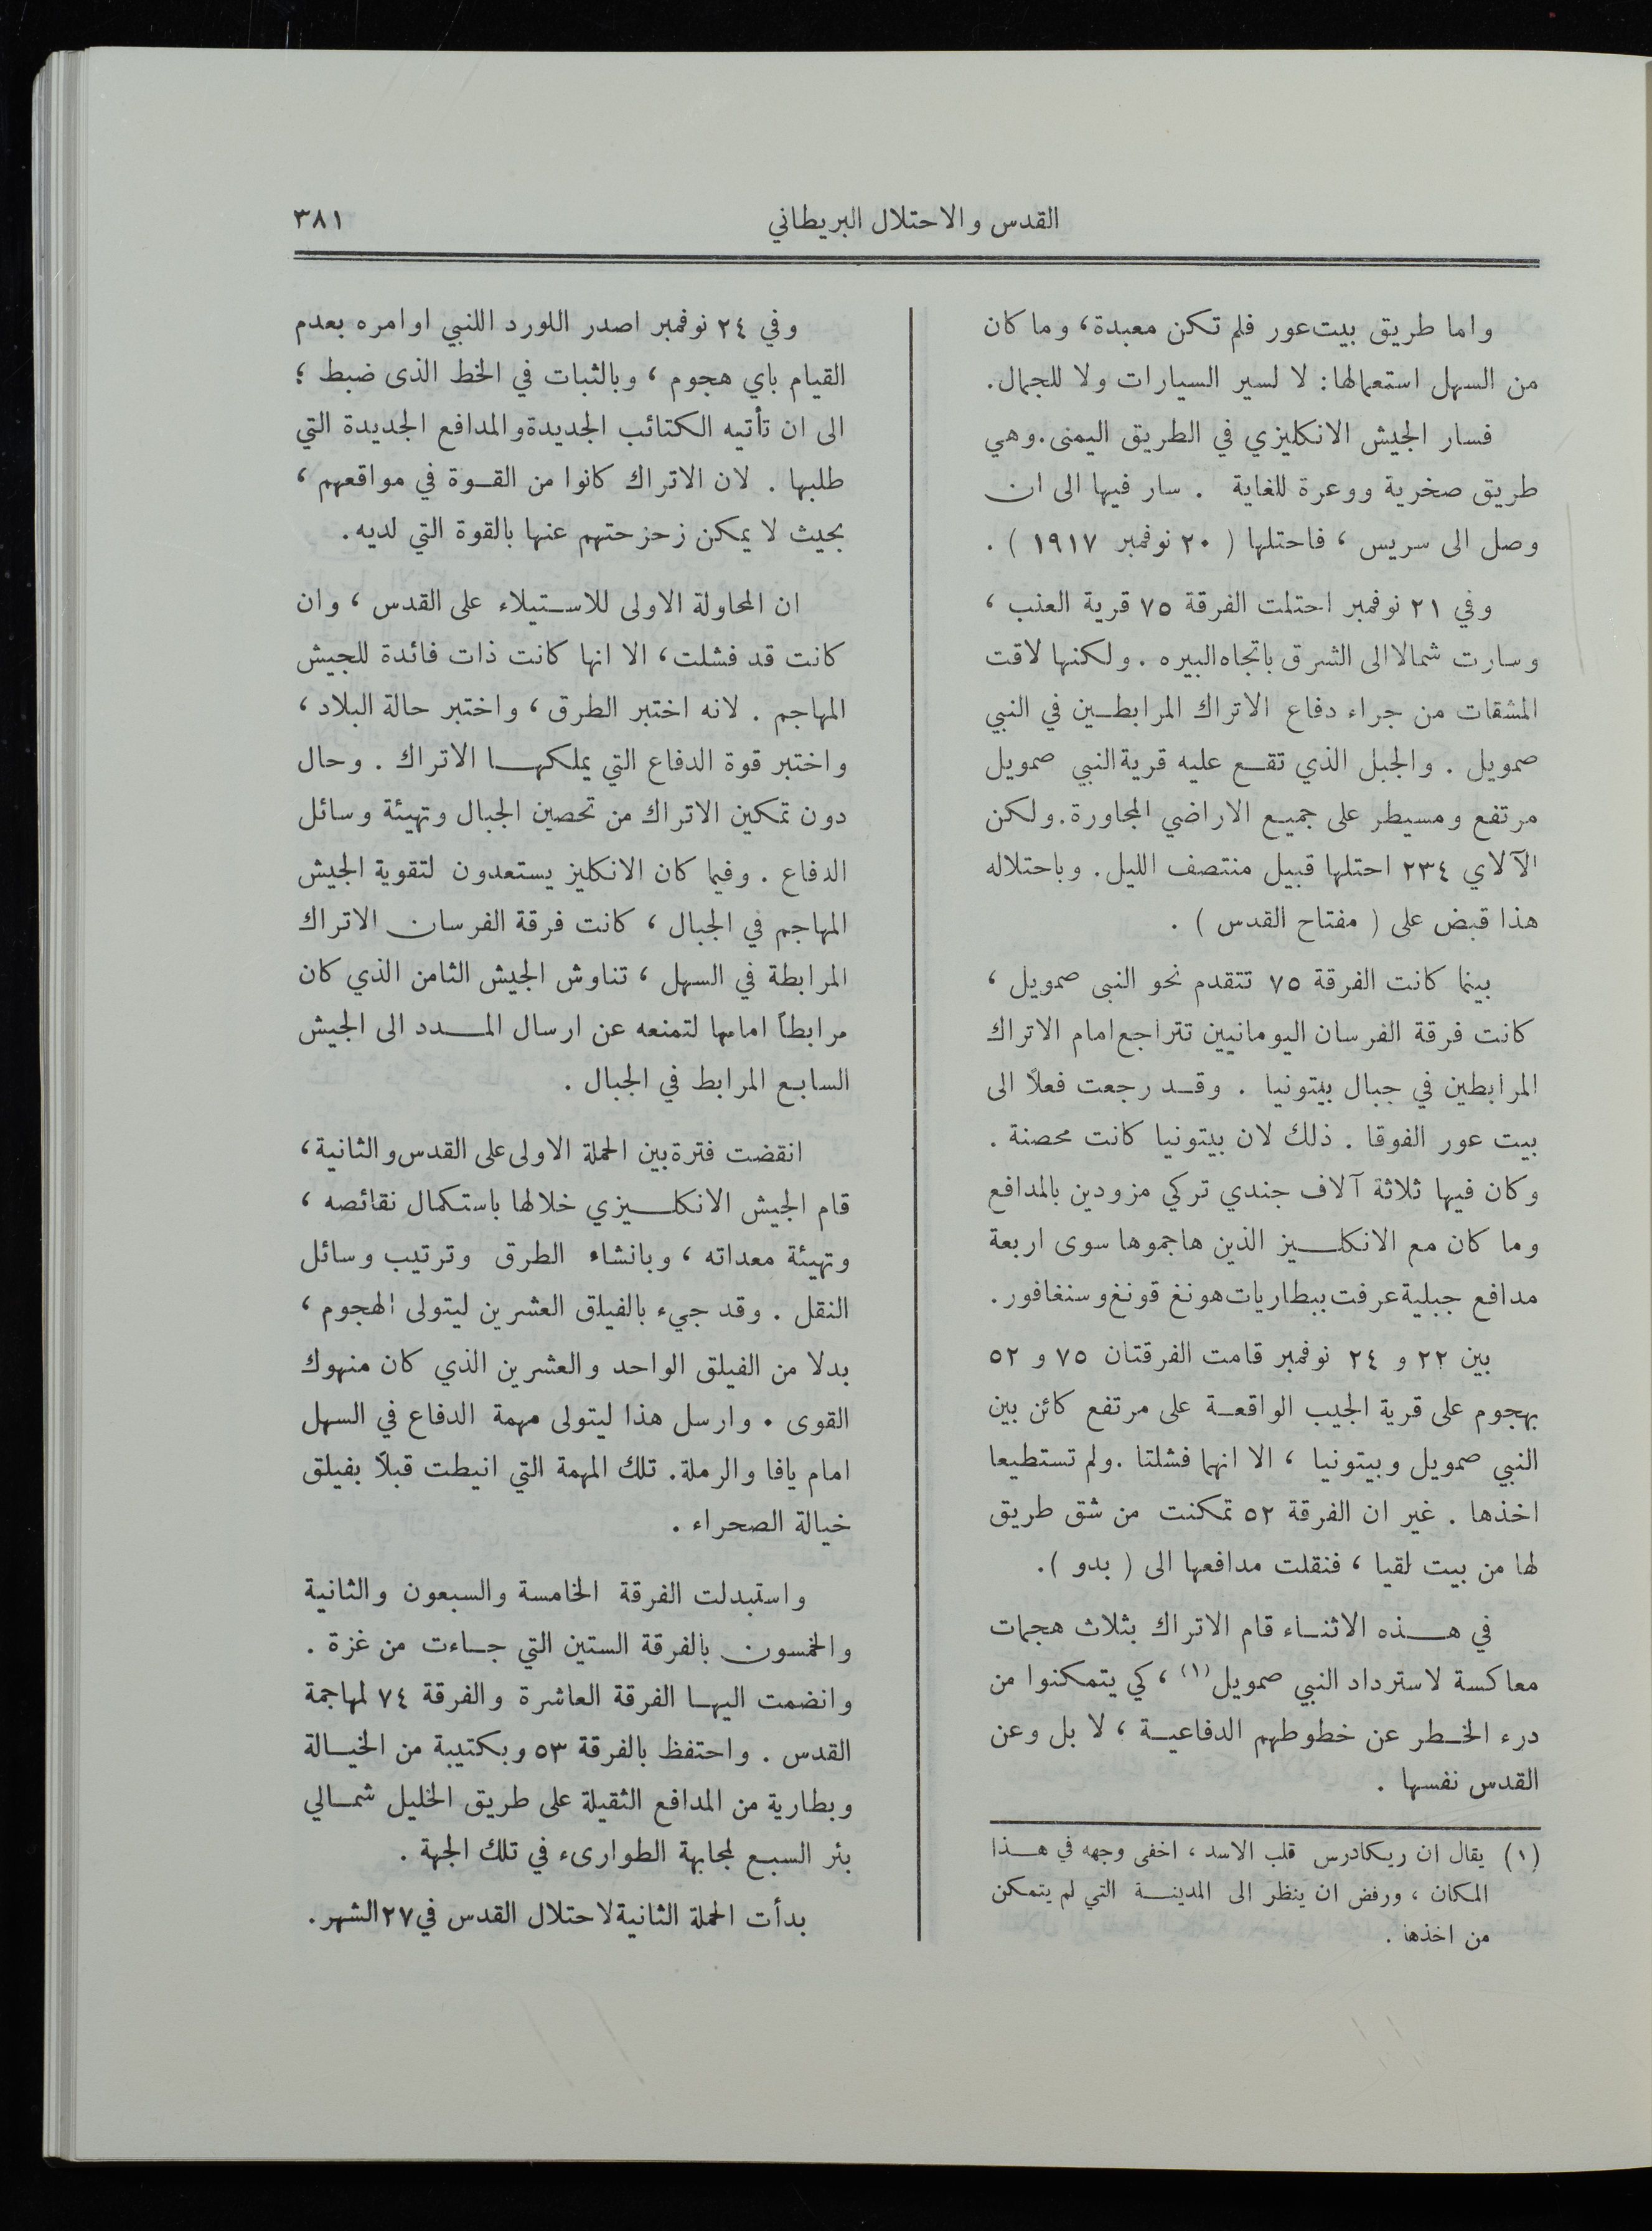 القدس والاحتلال البريطاني
٣٨١
واما طريق بيت عور فلم تكن معبدة، وما كان
من السهل استعمالها: لا لسير السيارات ولا للجمال.
فسار الجيش الانكليزي في الطريق اليمنى. وهي
طريق صخرية ووعرة للغاية . سار فيها الى ان
وصل الى سريس ، فاحتلها ( ٢٠ نوفمبر ١٩١٧ ) .
وفي ٢١ نوفمبر احتلت الفرقة ٧٥ قرية العنب ،
وسارت شمالا الى الشرق باتجاه البيره . ولكنها لاقت
المشقات من جراء دفاع الاتراك المرابطين في النبي
صمويل . والجبل الذي تقع عليه قرية النبي صمويل
مرتفع ومسيطر على جميع الاراضي المجاورة. ولكن
الآلاي ٢٣٤ احتلها قبيل منتصف الليل. وباحتلاله
هذا قبض على ( مفتاح القدس ) .
بينما كانت الفرقة ٧٥ تتقدم نحو النبى صمويل ،
كانت فرقة الفرسان اليومانيين تتراجع امام الاتراك
المرابطين في جبال بيتونيا . وقد رجعت فعلاً الى
بيت عور الفوقا . ذلك لان بيتونيا كانت محصنة .
وكان فيها ثلاثة آلاف جندي تركي مزودين بالمدافع
وما كان مع الانكليز الذين هاجموها سوى اربعة
مدافع جبلية عرفت ببطاريات هونغ قونغ وسنغافور.
بين ٢٢ و ٢٤ نوفمبر قامت الفرقتان ٧٥ و ٥٢
بهجوم على قرية الجيب الواقعة على مرتفع كائن بين
النبي صمويل وبيتونيا ، الا انهما فشلتا . ولم تستطيعا
اخذها . غير ان الفرقة ٥٢ تمكنت من شق طريق
لها من بيت لقيا ، فنقلت مدافعها الى ( بدو ).
في هذه الاثناء قام الاتراك بثلاث هجمات
معاكسة لاسترداد النبي صمويل (١) ، كي يتمكنوا من
درء الخطر عن خطوطهم الدفاعية ، لا بل وعن
القدس نفسها .
(١) يقال ان ريكادرس قلب الاسد ، اخفى وجهه في هذا
المكان ، ورفض ان ينظر الى المدينة التي لم يتمكن
من اخذها .
وفي ٢٤ نوفمبر اصدر اللورد اللنبي اوامره بعدم
القيام باي هجوم ، وبالثبات في الخط الذى ضبط ؛
الى ان تأتيه الكتائب الجديدة والمدافع الجديدة التي
طلبها . لان الاتراك كانوا من القوة في مواقعهم ،
بحيث لا يمكن زحزحتهم عنها بالقوة التي لديه.
ان المحاولة الاولى للاستيلاء على القدس ، وان
كانت قد فشلت، الا انها كانت ذات فائدة للجيش
المهاجم . لانه اختبر الطرق ، واختبر حالة البلاد ،
واختبر قوة الدفاع التي يملكها الاتراك . وحال
دون تمكين الاتراك من تحصين الجبال وتهيئة وسائل
الدفاع . وفيما كان الانكليز يستعدون لتقوية الجيش
المهاجم في الجبال ، كانت فرقة الفرسان الاتراك
المرابطة في السهل ، تناوش الجيش الثامن الذي كان
مرابطاً امامها لتمنعه عن ارسال المدد الى الجيش
السابع المرابط في الجبال .
انقضت فترة بين الحملة الاولى على القدس والثانية ،
قام الجيش الانكليزي خلالها باستكمال نقائصه ،
وتهيئة معداته ، وبانشاء الطرق وترتيب وسائل
النقل . وقد جيء بالفيلق العشرين ليتولى الهجوم ،
بدلا من الفيلق الواحد والعشرين الذي كان منهوك
القوى . وارسل هذا ليتولى مهمة الدفاع في السهل
امام يافا والرملة. تلك المهمة التي انيطت قبلاً بفيلق
خيالة الصحراء .
واستبدلت الفرقة الخامسة والسبعون والثانية
والخمسون بالفرقة الستين التي جاءت من غزة .
وانضمت اليها الفرقة العاشرة والفرقة ٧٤ لمهاجمة
القدس . واحتفظ بالفرقة ٥٣ وبكتيبة من الخيالة
وبطارية من المدافع الثقيلة على طريق الخليل شمالي
بئر السبع لمجابهة الطوارىء في تلك الجهة .
بدأت الحملة الثانية لاحتلال القدس في ٢٧ الشهر.